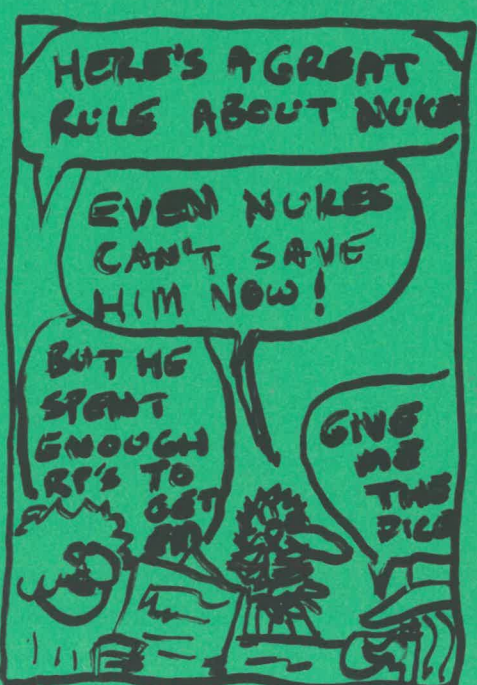 HERE'S A GREAT
RULE ABOUT NUKE
EVEN NUKES
CAN'T SAVE
HIM NOW!
BUT HE
SPENT
ENOUGH
RP'S TO
GET
EM
GIVE
ME
THE
DICE